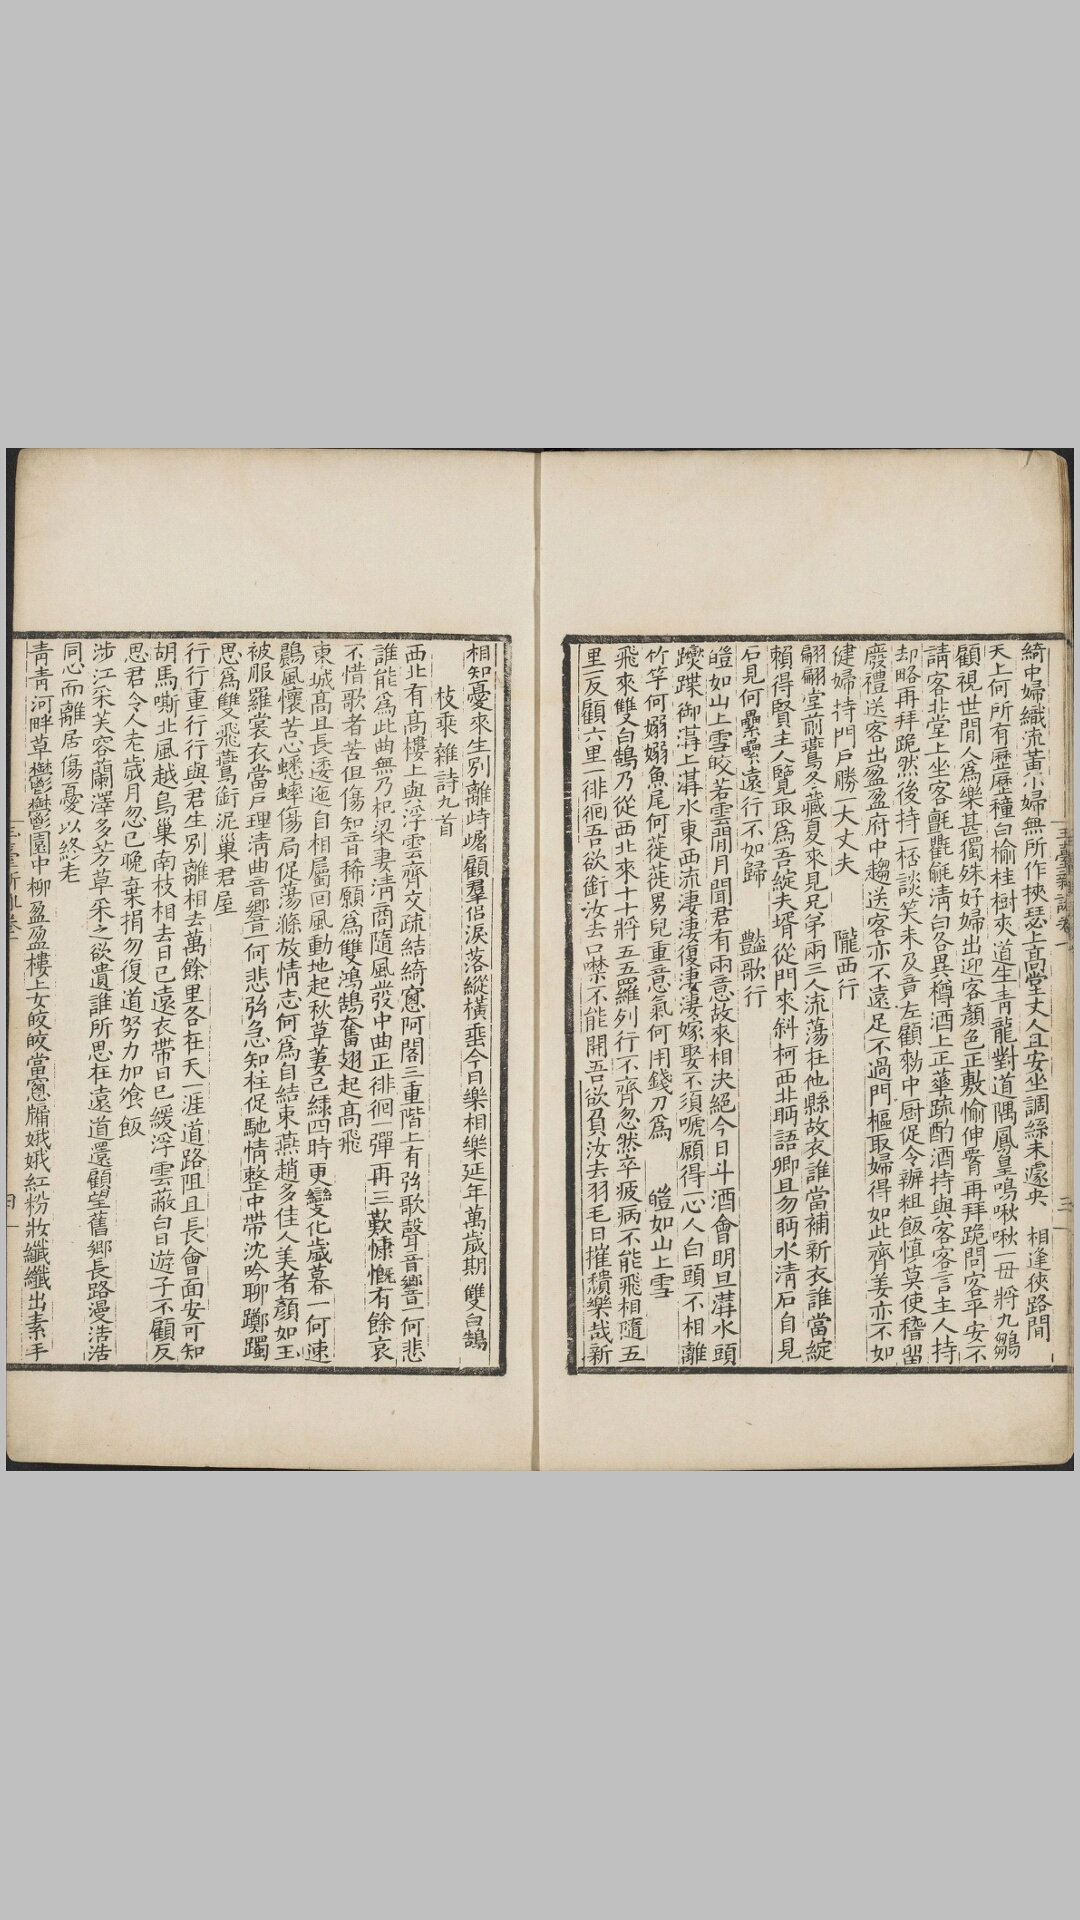 綺中婦織流黃小婦無所作挾瑟上高堂丈人且安坐調絲未遽央　相逢狹路間
天上何所有歷歷種白榆桂樹夾道生青龍對道隅鳳皇鳴啾啾一母將九鶵
顧視世間人爲樂甚獨殊好婦出迎客顏色正敷愉伸腰再拜跪問客平安不
請客北堂上坐客氊氍毹清白各異樽酒上正華疏酌酒持與客客言主人持
却略再拜跪然後持一桮談笑未及竟左顧勑中厨促令辦粗飯慎莫使稽留
廢禮送客出盈盈府中趨送客亦不遠足不過門樞取婦得如此齊姜亦不如
健婦持門戶勝一大丈夫　隴西行
翩翩堂前鷰冬藏夏來見兄弟兩三人流蕩在他縣故衣誰當補新衣誰當綻
賴得賢主人覽取爲吾綻夫壻從門來斜柯西北眄語卿且勿眄水清石自見
石見何纍纍遠行不如歸　豔歌行
皚如山上雪皎若雲間月聞君有兩意故來相決絕今日斗酒會明旦溝水頭
躞蹀御溝上溝水東西流淒淒復淒淒嫁娶不須啼願得一心人白頭不相離
竹竿何嫋嫋魚尾何蓰蓰男兒重意氣何用錢刀爲　皚如山上雪
飛來雙白鵠乃從西北來十十將五五羅列行不齊忽然卒疲病不能飛相隨五
里一反顧六里一徘徊吾欲銜汝去口噤不能開吾欲負汝去羽毛日摧穨樂哉新
相知憂來生別離峙躇顧羣侶淚落縱橫垂今日樂相樂延年萬歲期　雙白鵠
枚乘雜詩九首
西北有高樓上與浮雲齊交疏結綺窻阿閣三重階上有弦歌聲音響一何悲
誰能爲此曲無乃杞梁妻清商隨風發中曲正徘徊一彈再三歎慷慨有餘哀
不惜歌者苦但傷知音稀願爲雙鴻鵠奮翅起高飛
東城高且長逶迤自相屬回風動地起秋草萋已緑四時更變化歲暮一何速
鷐風懷苦心蟋蟀傷局促蕩滌放情志何爲自結束燕趙多佳人美者顏如玉
被服羅裳衣當戶理清曲音響一何悲弦急知柱促馳情整中帶沈吟聊躑躅
思爲雙飛鷰銜泥巢君屋
行行重行行與君生別離相去萬餘里各在天一涯道路阻且長會面安可知
胡馬嘶北風越鳥巢南枝相去日已遠衣帶日已緩浮雲蔽白日遊子不顧反
思君令人老歲月忽已晚棄捐勿復道努力加飱飯
涉江采芙容蘭澤多芳草采之欲遺誰所思在遠道還顧望舊鄉長路漫浩浩
同心而離居傷憂以終老
青青河畔草鬱鬱園中柳盈盈樓上女皎皎當窻牖娥娥紅粉妝纖纖出素手